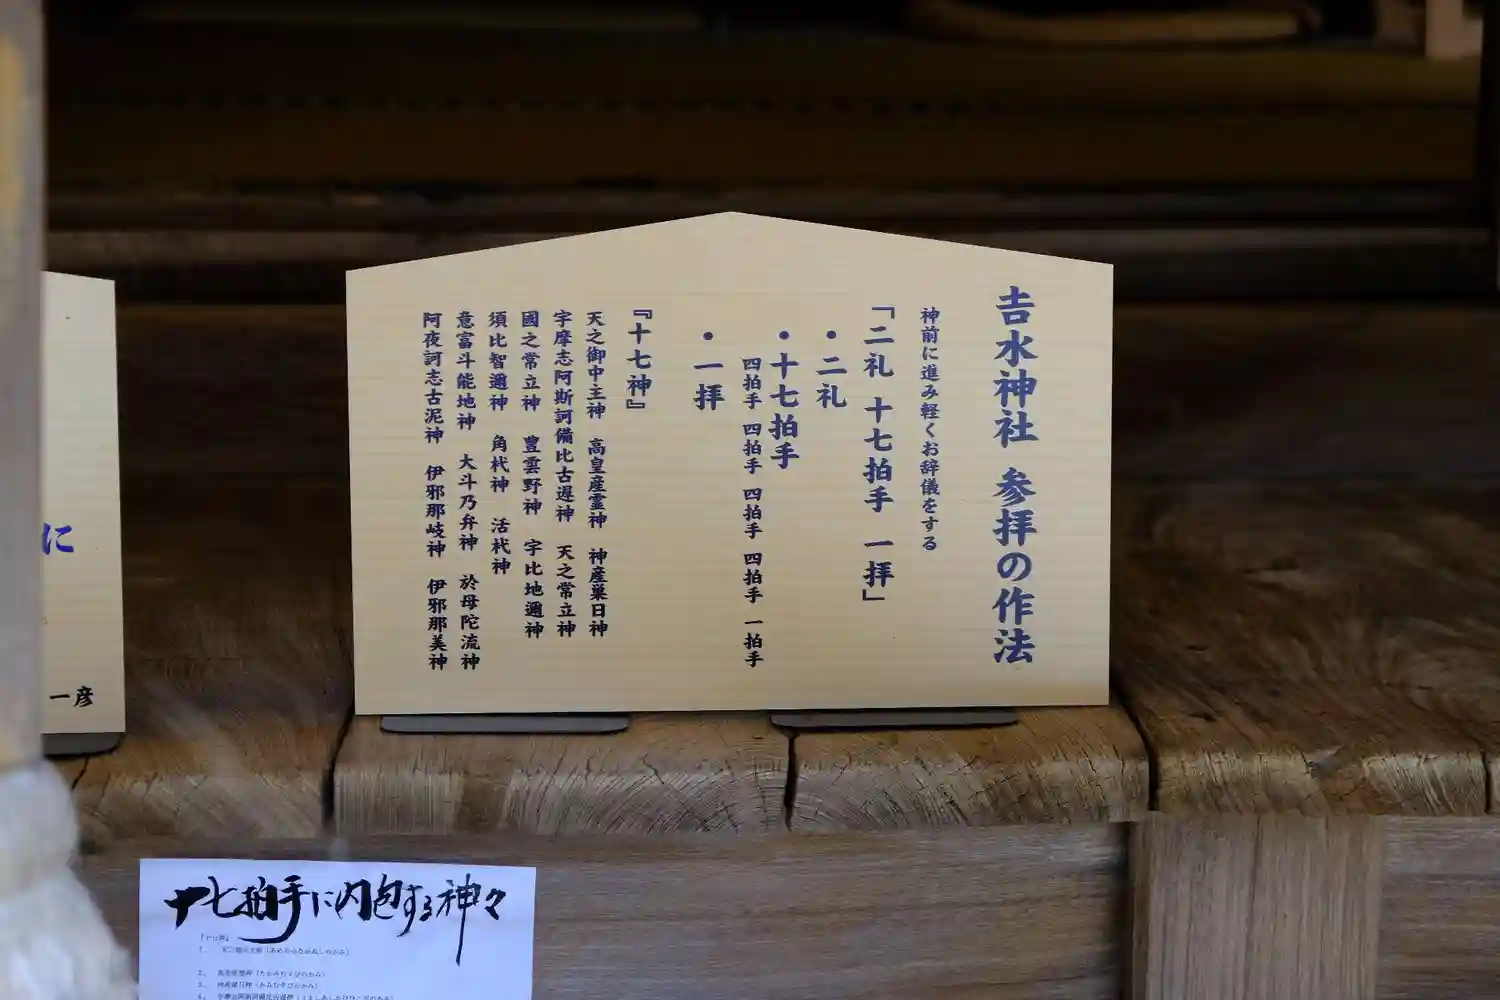 𠮷水神社 参拝の作法
神前に進み軽くお辞儀をする
「二礼 十七拍手 一拝」
・二礼
・十七拍手
四拍手 四拍手 四拍手 四拍手 一拍手
・一拝
『十七神』
天之御中主神 高皇産霊神 神産巣日神
宇摩志阿斯訶備比古遅神 天之常立神
國之常立神 豊雲野神 宇比地邇神
須比智邇神 角杙神 活杙神
意富斗能地神 大斗乃弁神 於母陀流神
阿夜訶志古泥神 伊邪那岐神 伊邪那美神
に
一彦
十七拍手に内包する神々